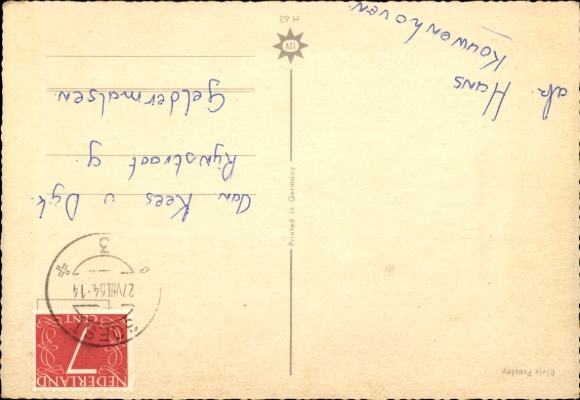 Elvis Presley
NEDERLAND
7
CENT
SOEST
27.VIII.64.-14
3
afz. Hans
Kouwenhoven.
Aan Kees v Dijk.
Rijnstraat 9
Geldermalsen.
Printed in Germany
ISV
H 63